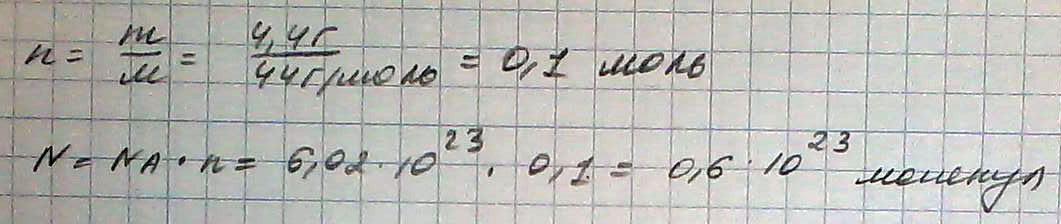 n = m/M = 4,4г/44г/моль = 0,1 моль
N = NA · n = 6,02 · 10²³ · 0,1 = 0,6 · 10²³ молекул